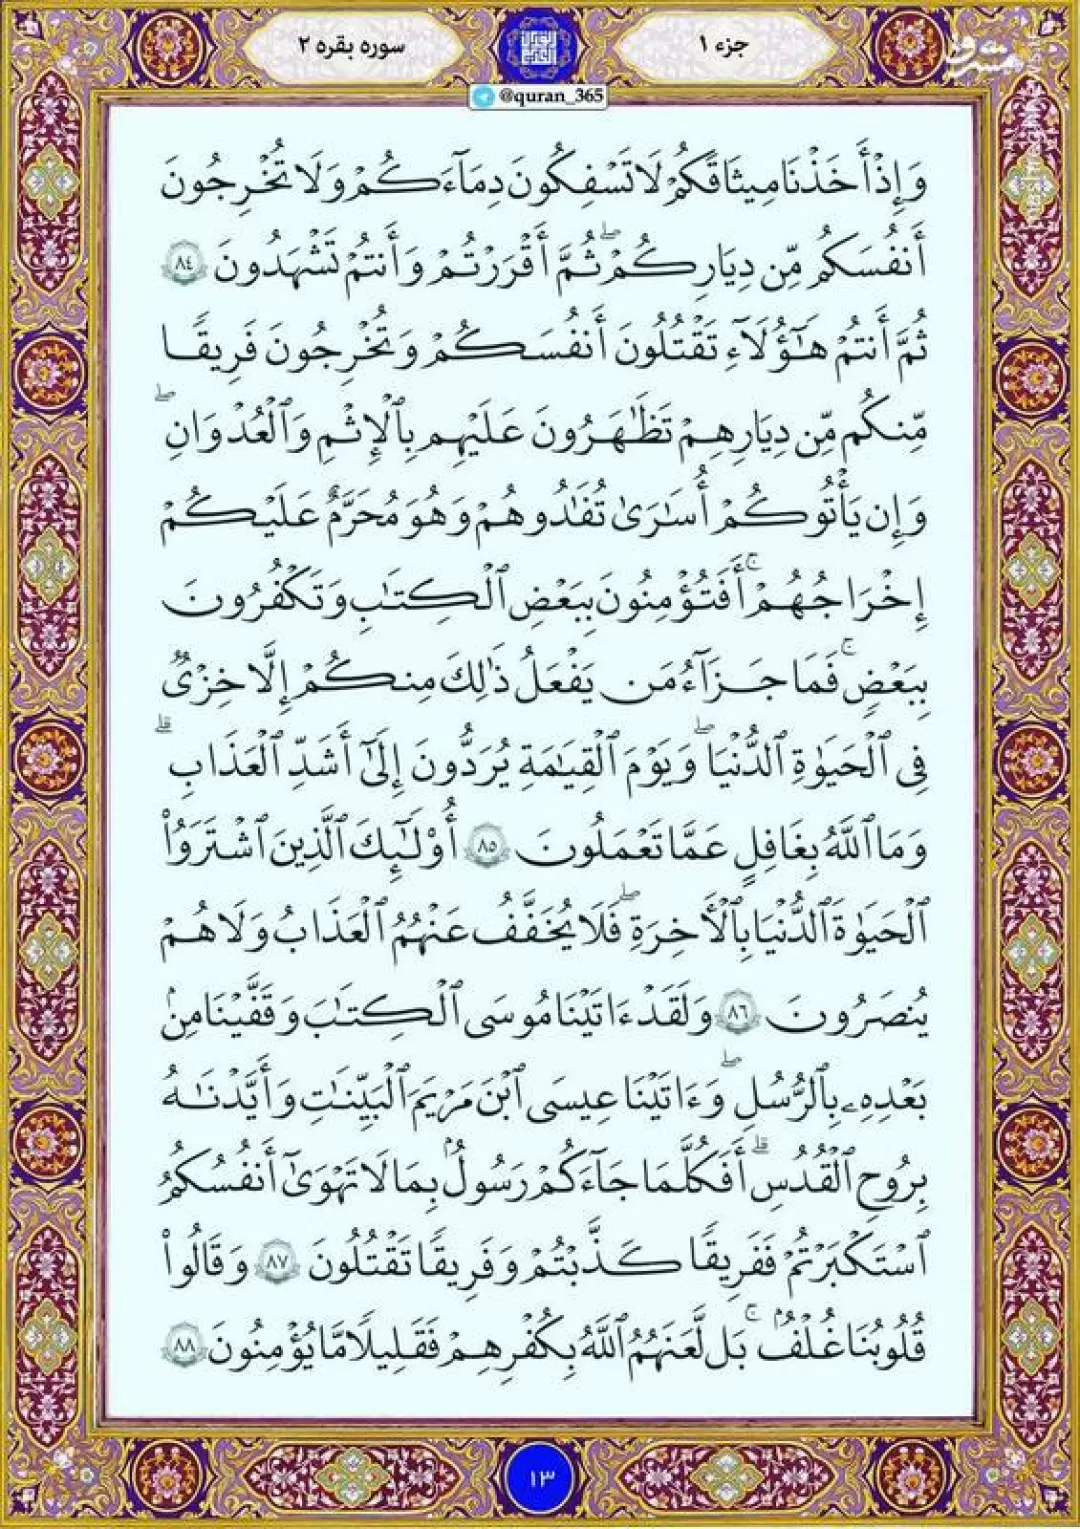 جزء ۱
سوره بقره ۲
@quran_365
وَإِذْ أَخَذْنَا مِيثَاقَكُمْ لَا تَسْفِكُونَ دِمَآءَكُمْ وَلَا تُخْرِجُونَ
أَنفُسَكُم مِّن دِيَارِكُمْ ۖ ثُمَّ أَقْرَرْتُمْ وَأَنتُمْ تَشْهَدُونَ ٨٤
ثُمَّ أَنتُمْ هَٰٓؤُلَآءِ تَقْتُلُونَ أَنفُسَكُمْ وَتُخْرِجُونَ فَرِيقًا
مِّنكُم مِّن دِيَارِهِمْ تَظَٰهَرُونَ عَلَيْهِم بِٱلْإِثْمِ وَٱلْعُدْوَانِ ۖ
وَإِن يَأْتُوكُمْ أُسَارَىٰ تُفَٰدُوهُمْ وَهُوَ مُحَرَّمٌ عَلَيْكُمْ
إِخْرَاجُهُمْ ۚ أَفَتُؤْمِنُونَ بِبَعْضِ ٱلْكِتَٰبِ وَتَكْفُرُونَ
بِبَعْضٍ ۚ فَمَا جَزَآءُ مَن يَفْعَلُ ذَٰلِكَ مِنكُمْ إِلَّا خِزْىٌ
فِى ٱلْحَيَوٰةِ ٱلدُّنْيَا ۖ وَيَوْمَ ٱلْقِيَٰمَةِ يُرَدُّونَ إِلَىٰٓ أَشَدِّ ٱلْعَذَابِ ۗ
وَمَا ٱللَّهُ بِغَافِلٍ عَمَّا تَعْمَلُونَ ٨٥ أُو۟لَٰٓئِكَ ٱلَّذِينَ ٱشْتَرَوُا۟
ٱلْحَيَوٰةَ ٱلدُّنْيَا بِٱلْأَخِرَةِ ۖ فَلَا يُخَفَّفُ عَنْهُمُ ٱلْعَذَابُ وَلَا هُمْ
يُنصَرُونَ ٨٦ وَلَقَدْ ءَاتَيْنَا مُوسَى ٱلْكِتَٰبَ وَقَفَّيْنَا مِنۢ
بَعْدِهِۦ بِٱلرُّسُلِ ۖ وَءَاتَيْنَا عِيسَى ٱبْنَ مَرْيَمَ ٱلْبَيِّنَٰتِ وَأَيَّدْنَٰهُ
بِرُوحِ ٱلْقُدُسِ ۗ أَفَكُلَّمَا جَآءَكُمْ رَسُولٌۢ بِمَا لَا تَهْوَىٰٓ أَنفُسُكُمُ
ٱسْتَكْبَرْتُمْ فَفَرِيقًا كَذَّبْتُمْ وَفَرِيقًا تَقْتُلُونَ ٨٧ وَقَالُوا۟
قُلُوبُنَا غُلْفٌۢ ۚ بَل لَّعَنَهُمُ ٱللَّهُ بِكُفْرِهِمْ فَقَلِيلًا مَّا يُؤْمِنُونَ ٨٨
۱۳